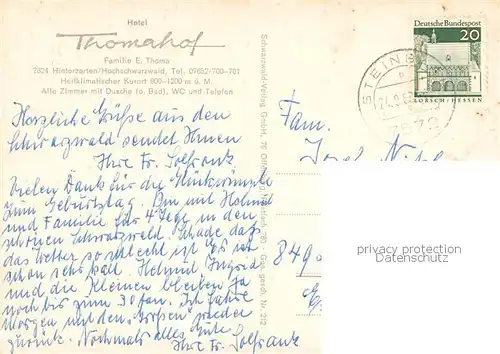 Hotel
Thomahof
Familie E. Thoma
7824 Hinterzarten/Hochschwarzwald, Tel. 07652-700-701
Heilklimatischer Kurort 800-1200 m ü. M.
Alle Zimmer mit Dusche (o. Bad), WC und Telefon
Herzliche Grüße aus dem
Schwarzwald sendet Ihnen
Ihre Fr. Solfrank
Vielen Dank für die Glückwünsche
zum Geburtstag. Bin mit Helmut
und Familie für 4 Tage in dem
schönen Schwarzwald. Schade daß
das Wetter so schlecht ist. Es ist
schon sehr kalt. Helmut Ingrid
und die Kleinen bleiben ja
noch bis zum 30 ten. Ich fahre
Morgen mit den "Großen" wieder
zurück. Nochmals alles Gute
Ihre Fr. Solfrank
Schwarzwald-Verlag GmbH, 76 Offenburg
Ges. gesch. Nr. 212
Deutsche Bundespost
20
LORSCH/HESSEN
STEIN
24.9.
7573
Fam.
849
privacy protection
Datenschutz